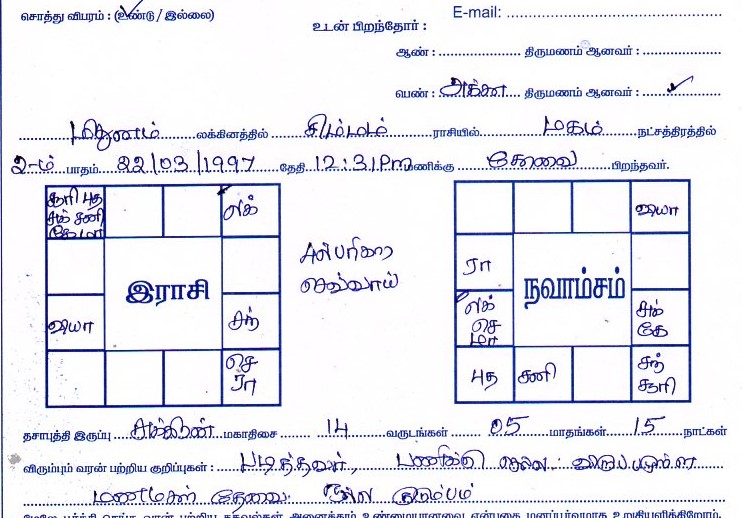 சொத்து விபரம் : (உண்டு / இல்லை)
E-mail:
உடன் பிறந்தோர் :
ஆண் : திருமணம் ஆனவர் :
பெண் : அக்கா திருமணம் ஆனவர் : ✓
மிதுனம் லக்கினத்தில் சிம்மம் ராசியில் மகம் நட்சத்திரத்தில்
2-ம் பாதம் 22/03/1997 தேதி 12:31Pm மணிக்கு கோவை பிறந்தவர்.
சூரி புத
சுக் சனி
கே மா
லக்
குயா
சந்
செ
ரா
இராசி
பரிகார
செவ்வாய்
குயா
ரா
லக்
செ
மா
சுக்
கே
புத
சனி
சந்
சூரி
நவாம்சம்
தசாபுத்தி இருப்பு சுக்கிரன் மகாதிசை 14 வருடங்கள் 05 மாதங்கள் 15 நாட்கள்
விரும்பும் வரன் பற்றிய குறிப்புகள் : படித்தவள், பணிக்கு செல்ல விருப்பமுள்ள
மணமகள் தேவை. நல்ல குடும்பம்